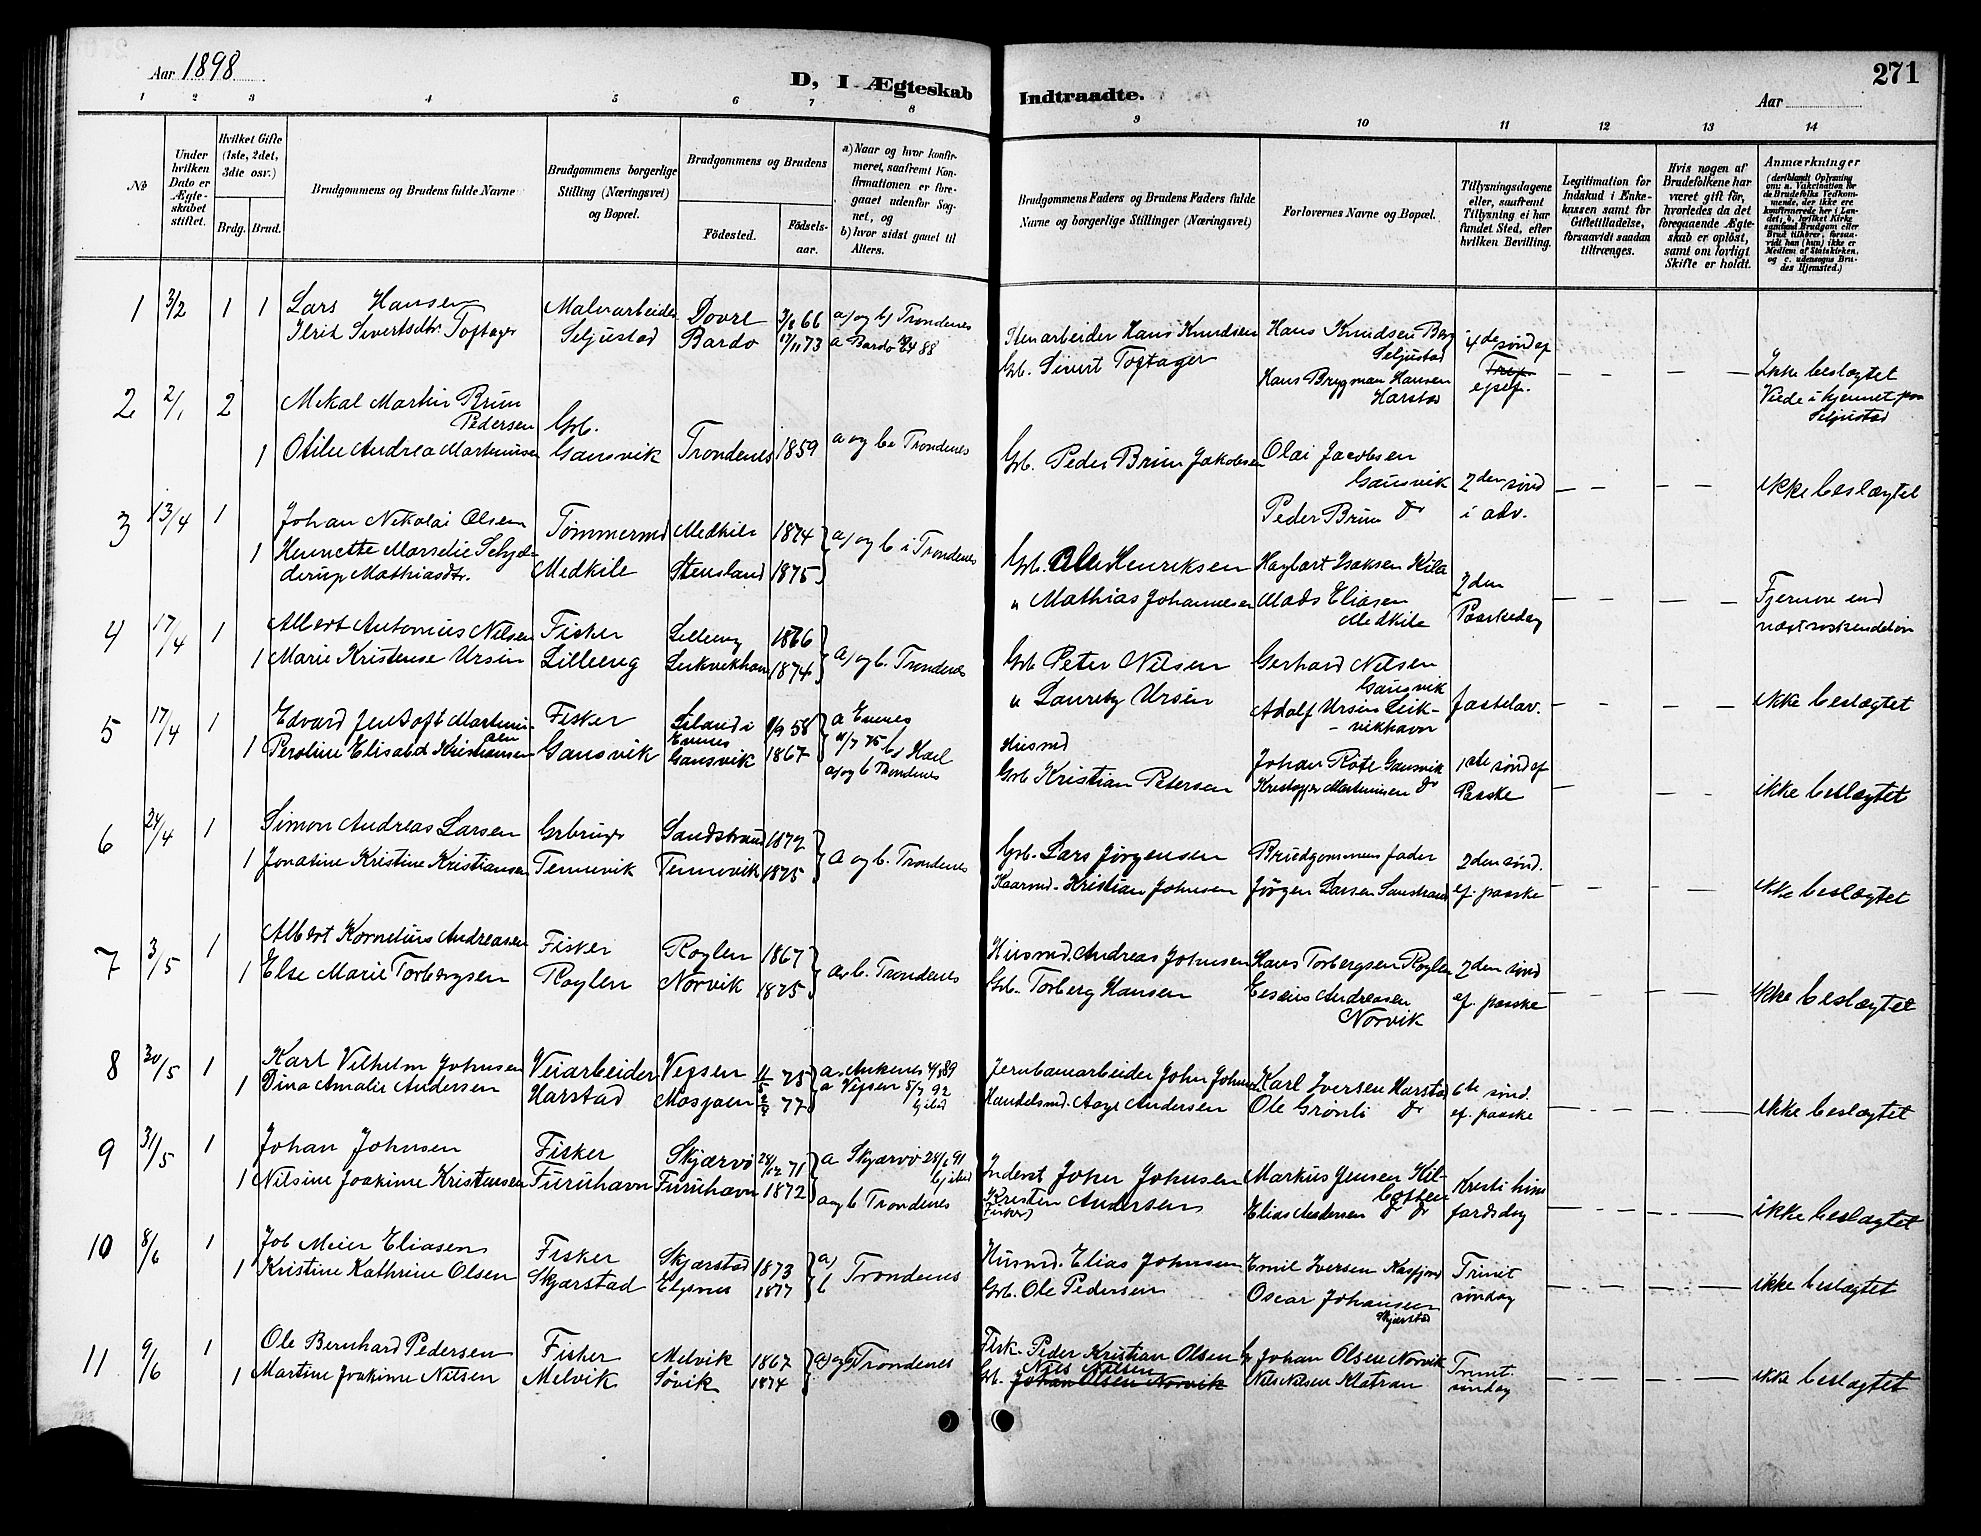 Aar 1898
D, I Ægteskab
Indtraadte.
Aar
271
1 2 3 4 5 6 7 8 9 10 11 12 13 14
No
Under hvilken Dato er Ægteskabet stiftet.
Hvilket Gifte (1ste, 2det, 3die osv.)
Brdg. Brud.
Brudgommens og Brudens fulde Navne
Brudgommens borgerlige Stilling (Næringsvei) og Bopæl.
Brudgommens og Brudens
Födested. Födselsaar.
a) Naar og hvor konfirmeret, saafremt Konfirmationen er foregaaet udenfor Sognet, og
b) hvor sidst gaaet til Alters.
Brudgommens Faders og Brudens Faders fulde Navne og borgerlige Stillinger (Næringsvei)
Forlovernes Navne og Bopæl.
Tillysningsdagene eller, saafremt Tillysning ei har fundet Sted, efter hvilken Bevilling.
Legitimation for Indskud i Enkekassen samt for Giftetilladelse, forsaavidt saadan tiltrænges.
Hvis nogen af Brudefolkene har været gift før, hvorledes da det foregaaende Ægteskab er opløst, samt om lovligt Skifte er holdt.
Anmærkninger
1 3/2 1 1 Lars Hansen Malerarbeider Dovre 66 a) og b) Trondenes
Sivertsdtr. Toftager Seljestad Bardo 73 a Bardo 88
Stenarbeider Hans Knudsen Hans Knudsen Berg Seljestad 4de sønd ef
Grb. Sivert Toftager Hans Brygman Hansen Harstad
Ikke beslægtet
Viede i hjemmet paa Seljestad
2 2/1 2 Mikal Martin Brun Pedersen Grb.
1 Otilie Andrea Martinusen Gansvik Trondenes 1859 a og b Trondenes
Grb. Peder Brun Jakobsen Olai Jacobsen Gansvik 2den sønd
Peder Brun Do i adv.
ikke beslægtet
3 13/4 1 Johan Nikolai Olsen Tømmermd Medkile 1874 a) og b i Trondenes
1 Mathiasdtr. Medkile Stensland 1875
Grb. Ole Henriksen Isaksen Kila 2den
" Mathias Johannesen Mads Eliasen Medkile Paaskedag
Fjernere end
4 17/4 1 Albert Antonius Nilsen Fisker Lilleeng 1866
1 Marie Kristense Ursin Lilleeng 1874 a) og b. Trondenes
Grb Peter Nilsen Gerhard Nilsen Gansvik
" Ursin Adolf Ursin Leikvikhavn fastelav.
ikke beslægtet
5 17/4 1 Edvard Jentoft Martinusen Fisker Liland i Evenes 58 a Evenes
1 Peroline Elisabet Kristiansen Gansvik Gansvik 1867 a) og b Trondenes
Husmd
Grb Kristian Petersen Johan Gansvik 1ste sønd ef
Kristoffer Martinusen Do Paaske
ikke beslægtet
6 24/4 1 Simon Andreas Larsen Grbruger Sandstrand 1872
1 Jonatine Kristine Kristiansen Tennevik Tennevik 1875 a og b. Trondenes
Grb. Lars Jørgensen Brudgommens fader 2den sønd.
Kristian Johnsen Jörgen Larsen Sandstrand ef. paaske
ikke beslægtet
7 3/5 1 Albert Kornelius Andreasen Fisker Røglen 1867
1 Else Marie Torbergsen Røglen Norvik 1875 a, b. Trondenes
Husmd. Andreas Johnsen Hans Torbergsen Røglen 2den sønd
Grb. Torberg Hansen Andreasen Norvik ef. paaske
ikke beslægtet
8 30/5 1 Karl Vilhelm Johnsen Veiarbeider Vefsen 11/5 75 a. Ankenes 89
1 Dina Amalie Andersen Harstad Mosjøen 77 a Vefsen 5/7 92
Jernbanearbeider John Johnsen Karl Iversen Harstad 6te sønd.
Handelsmd. Aage Andersen Ole Grønli Do ef. paaske
ikke beslægtet
9 31/5 1 Johan Johnsen Fisker Skjærvö 71 a Skjærvö 91
1 Nilsine Joakime Kristensen Furuhavn Furuhavn 1872 a og b Trondenes
Inderst John Johnsen Markus Jensen Kilbotten Kristi him
Kristen Andersen (Fisker) Elias Do fardsdag
ikke beslægtet
10 8/6 1 Job Meier Eliasen Fisker Skjærstad 1873 a)
1 Kristine Kathrine Olsen Skjærstad Elgsnes 1877 b Trondenes
Husmd. Elias Johnsen Emil Iversen Kasfjord Trinit
Grb. Ole Pedersen Oscar Johansen Skjærstad søndag
ikke beslægtet
11 9/6 1 Ole Bernhard Pedersen Fisker Melvik 1867 a) og b) Trondenes
1 Martine Joakime Nilsen Melvik Sövik 1874
Fisk. Peder Kristian Olsen Johan Olsen Norvik Trinit.
Grb. Nils Nilsen Johan Olsen Norvik Nils Nilsen Klatran søndag
ikke beslægtet